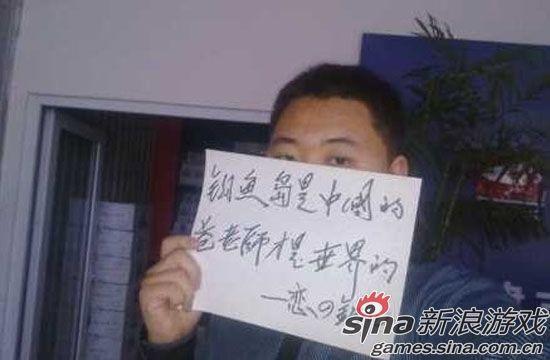 钓魚島是中國的
苍老師才是世界的
一恋の
sina新浪游戏
games.sina.com.cn